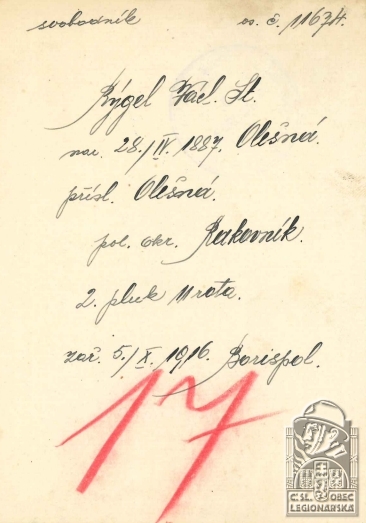 svobodník os. č. 11674.
Rýgel Václ. St.
nar. 28./IV. 1887. Olešná.
přísl. Olešná.
pol. okr. Rakovník.
2. pluk 11 rota.
zař. 5./X. 1916. Borispol.
17
Č.SL. OBEC
LEGIONÁŘSKÁ